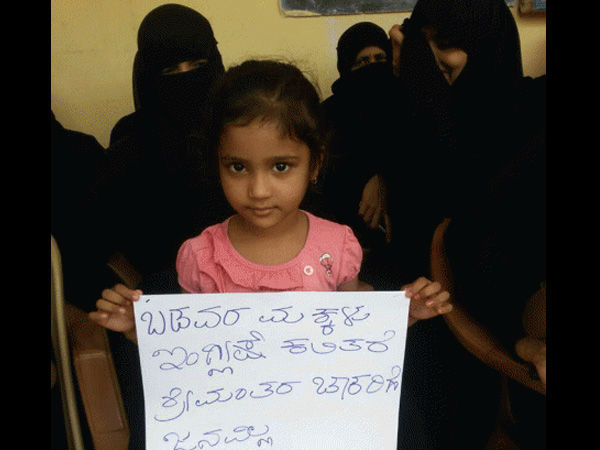 ಬಡವರ ಮಕ್ಕಳು
ಇಂಗ್ಲಿಷ್ ಕಲಿತರೆ
ಶ್ರೀಮಂತರ ಚಾಕರಿಗೆ
ಜನವಿಲ್ಲ